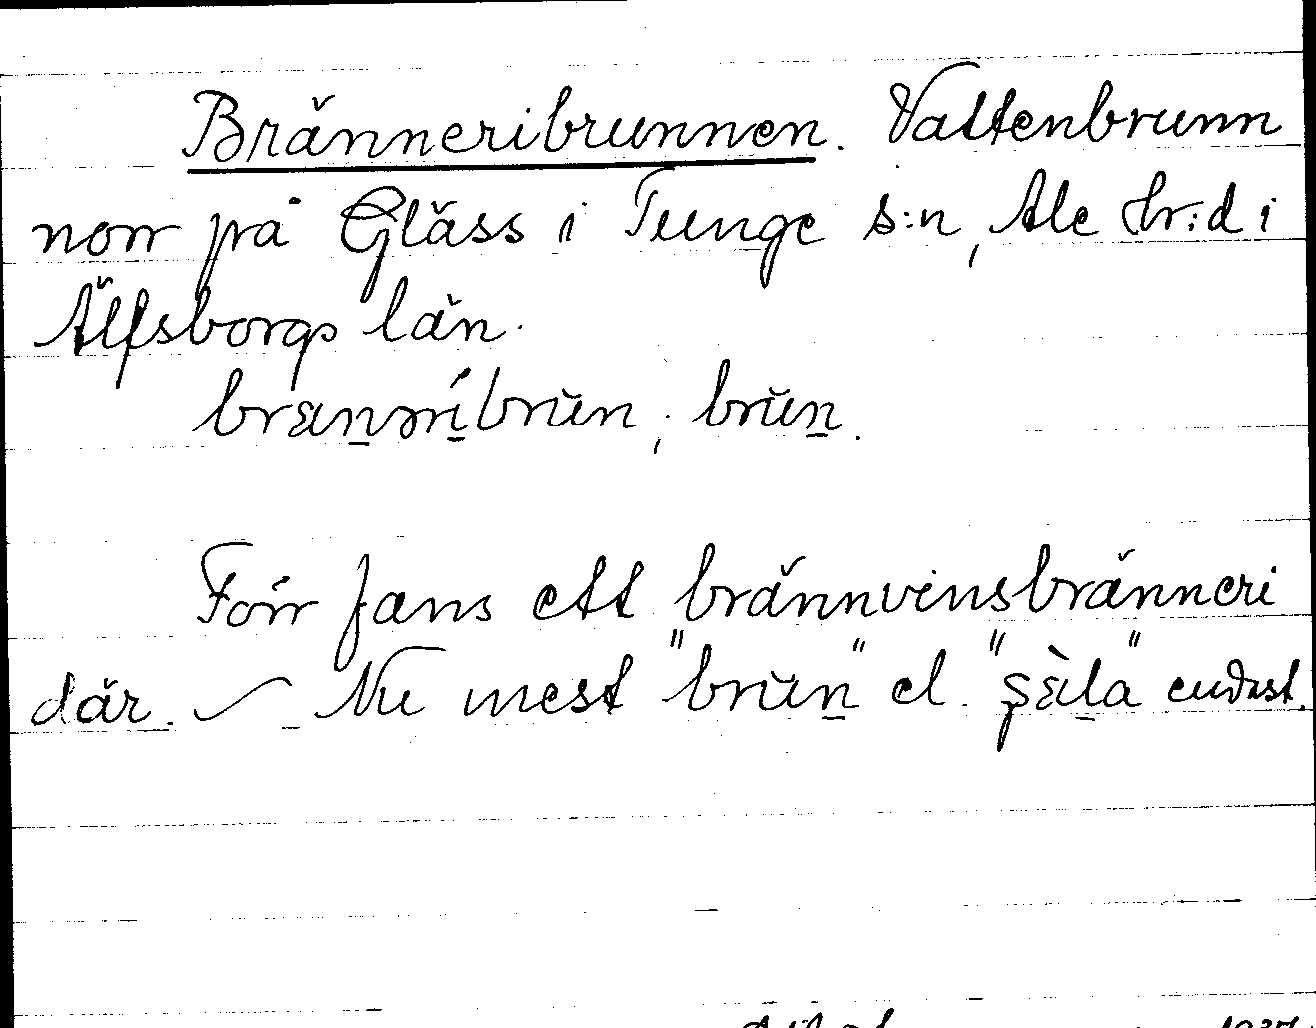 Bränneribrunnen. Vattenbrunn
norr på Gläss i Tunge s:n, Ale hr:d i
Älfsborgs län.
brænəríbrŭn, brŭn.
Förr fans ett brännvinsbränneri
där. – Nu mest "brŭn" el. "şæ̀la" endast.